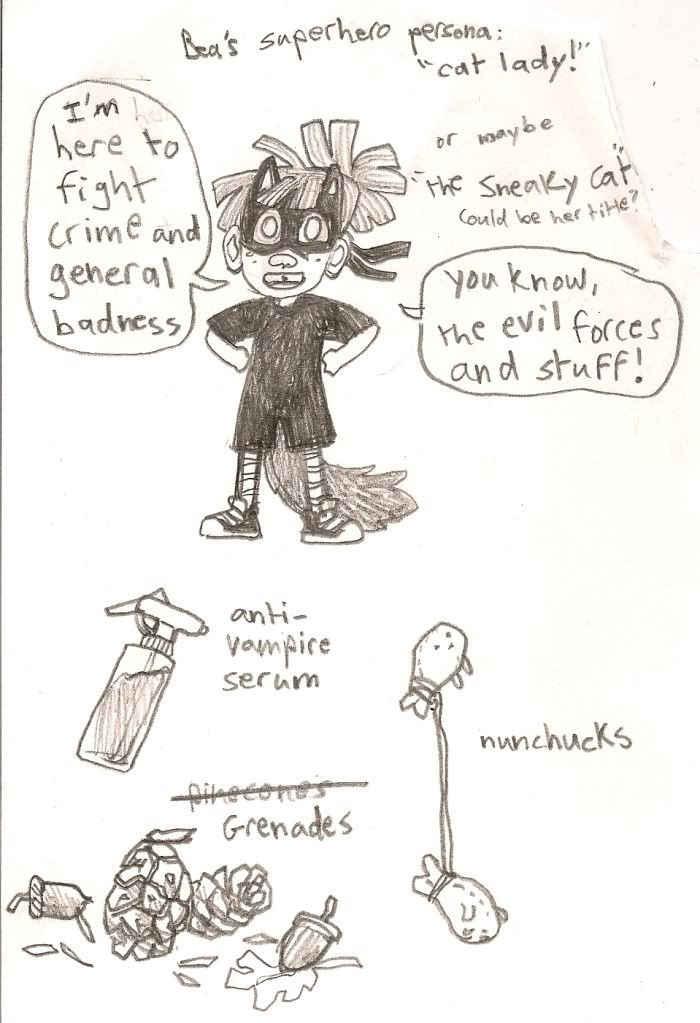 Bea's superhero persona:
"cat lady!"
or maybe
"the Sneaky cat"
could be her title?
I'm
here to
fight
crime and
general
badness
you know,
the evil forces
and stuff!
anti-
vampire
serum
nunchucks
pinecones
Grenades